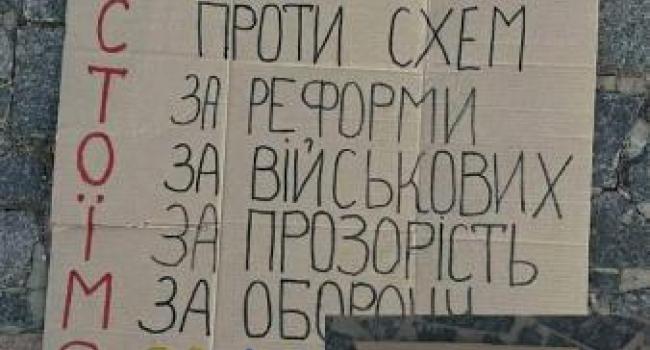 С ПРОТИ СХЕМ
Т ЗА РЕФОРМИ
О ЗА ВІЙСЬКОВИХ
Ї ЗА ПРОЗОРІСТЬ
М ЗА ОБОРОНУ